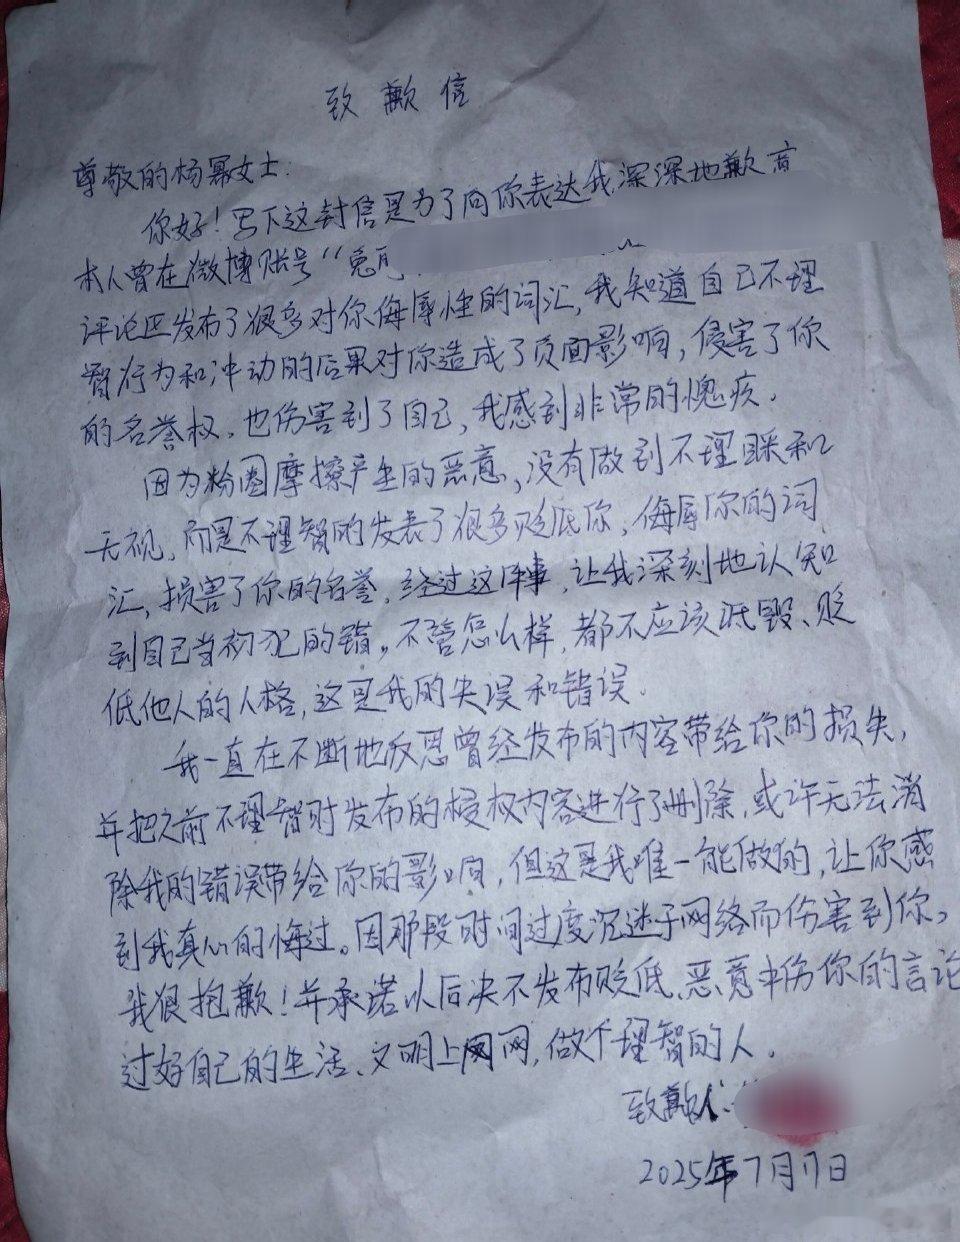 致歉信
尊敬的杨幂女士:
你好！写下这封信是为了向你表达我深深地歉意
本人曾在微博账号“兔
评论区发布了很多对你侮辱性的词汇，我知道自己不理
智行为和冲动的后果对你造成了负面影响，侵害了你
的名誉权，也伤害到了自己，我感到非常的愧疚.
因为粉圈摩擦产生的恶意，没有做到不理睬和
无视，而是不理智的发表了很多贬低你，侮辱你的词
汇，损害了你的名誉，经过这件事，让我深刻地认知
到自己当初犯的错。不管怎么样，都不应该诋毁、贬
低他人的人格，这是我的失误和错误.
我一直在不断地反思曾经发布的内容带给你的损失，
并把之前不理智时发布的侵权内容进行了删除，或许无法消
除我的错误带给你的影响，但这是我唯一能做的，让你感
到我真心的悔过。因那段时间过度沉迷于网络而伤害到你，
我很抱歉！并承诺以后决不发布贬低、恶意中伤你的言论
过好自己的生活、文明上网，做个理智的人.
致歉人:
2025年7月17日